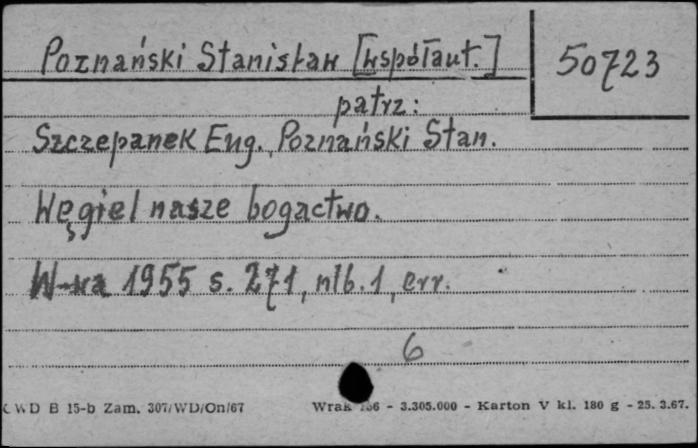 Poznański Stanisław [współaut.]
50723
patrz:
Szczepanek Eug., Poznański Stan.
Węgiel nasze bogactwo.
W-wa 1955 s. 271, nlb. 1, err.
6
WD B 15-b Zam. 307/WD/On/67
- 3.305.000 - Karton V kl. 180 g - 25.3.67.